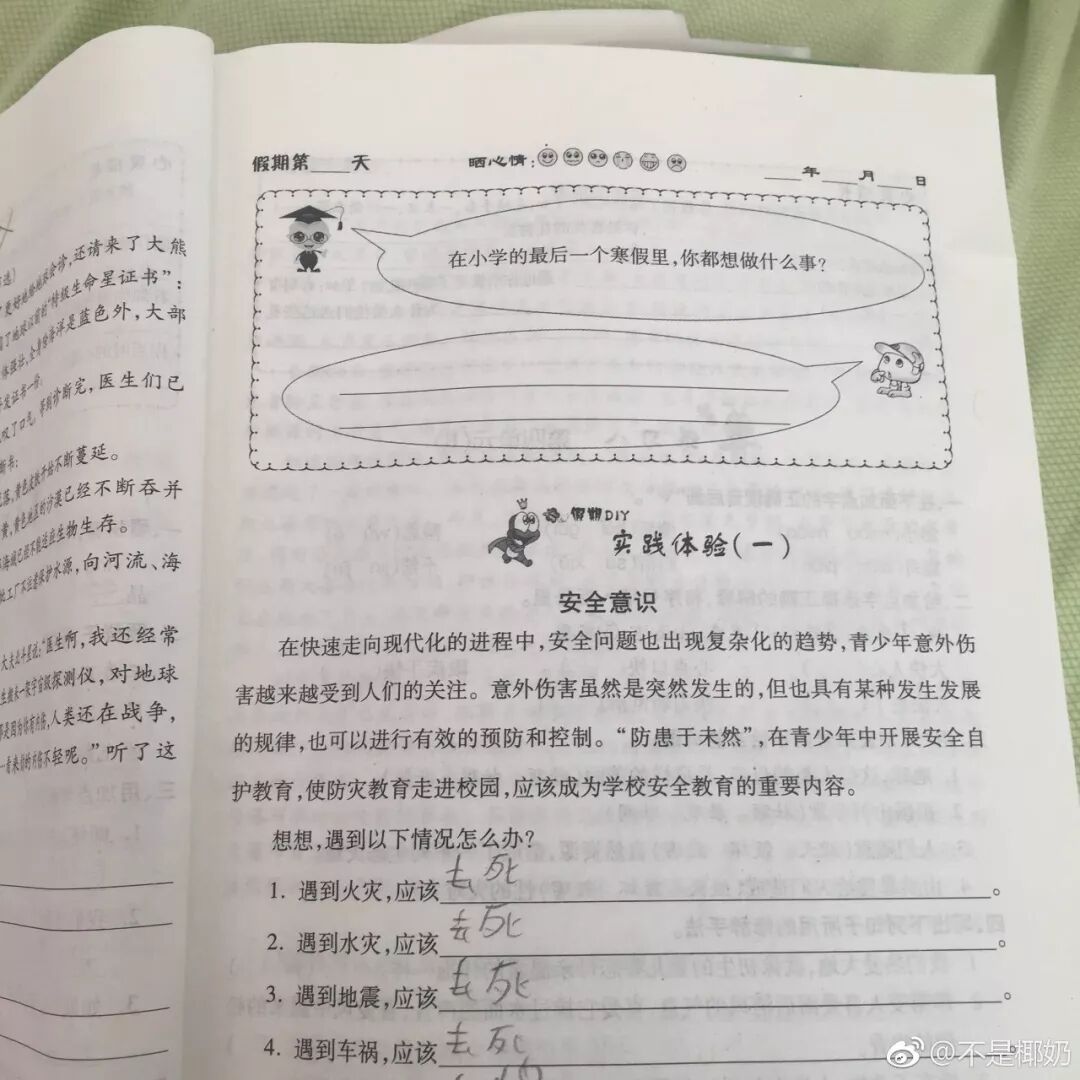 还请来了大熊
特级生命星证书”:
海洋是蓝色外,大部
等到诊断完,医生们已
黄色皮肤开始不断蔓延。
黄色地区的沙漠已经不断吞并
不能适应生物生存。
保护水源,向河流、海
“医生啊,我还经常
探测仪,对地球
人类还在战争,
不轻呢。”听了这
假期第____天 晒心情: ____年____月____日
在小学的最后一个寒假里,你都想做什么事?
假期DIY
实践体验(一)
安全意识
在快速走向现代化的进程中,安全问题也出现复杂化的趋势,青少年意外伤
害越来越受到人们的关注。意外伤害虽然是突然发生的,但也具有某种发生发展
的规律,也可以进行有效的预防和控制。“防患于未然”,在青少年中开展安全自
护教育,使防灾教育走进校园,应该成为学校安全教育的重要内容。
想想,遇到以下情况怎么办?
1. 遇到火灾,应该去死。
2. 遇到水灾,应该去死。
3. 遇到地震,应该去死。
4. 遇到车祸,应该去死
@不是椰奶